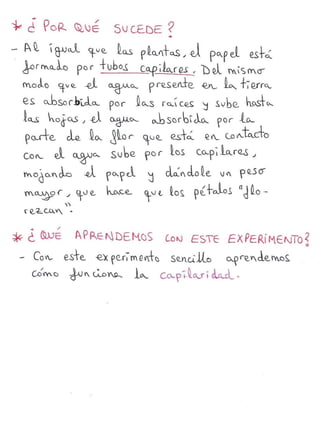 * ¿ POR QUÉ SUCEDE ?
- Al igual que las plantas, el papel está
formado por tubos capilares. Del mismo
modo que el agua presente en la tierra
es absorbida por las raíces y sube hasta
las hojas, el agua absorbida por la
parte de la flor que está en contacto
con el agua sube por los capilares,
mojando el papel y dándole un peso
mayor, que hace que los pétalos "flo-
rezcan".
* ¿ QUÉ APRENDEMOS CON ESTE EXPERIMENTO?
- Con este experimento sencillo aprendemos
cómo funciona la capilaridad.